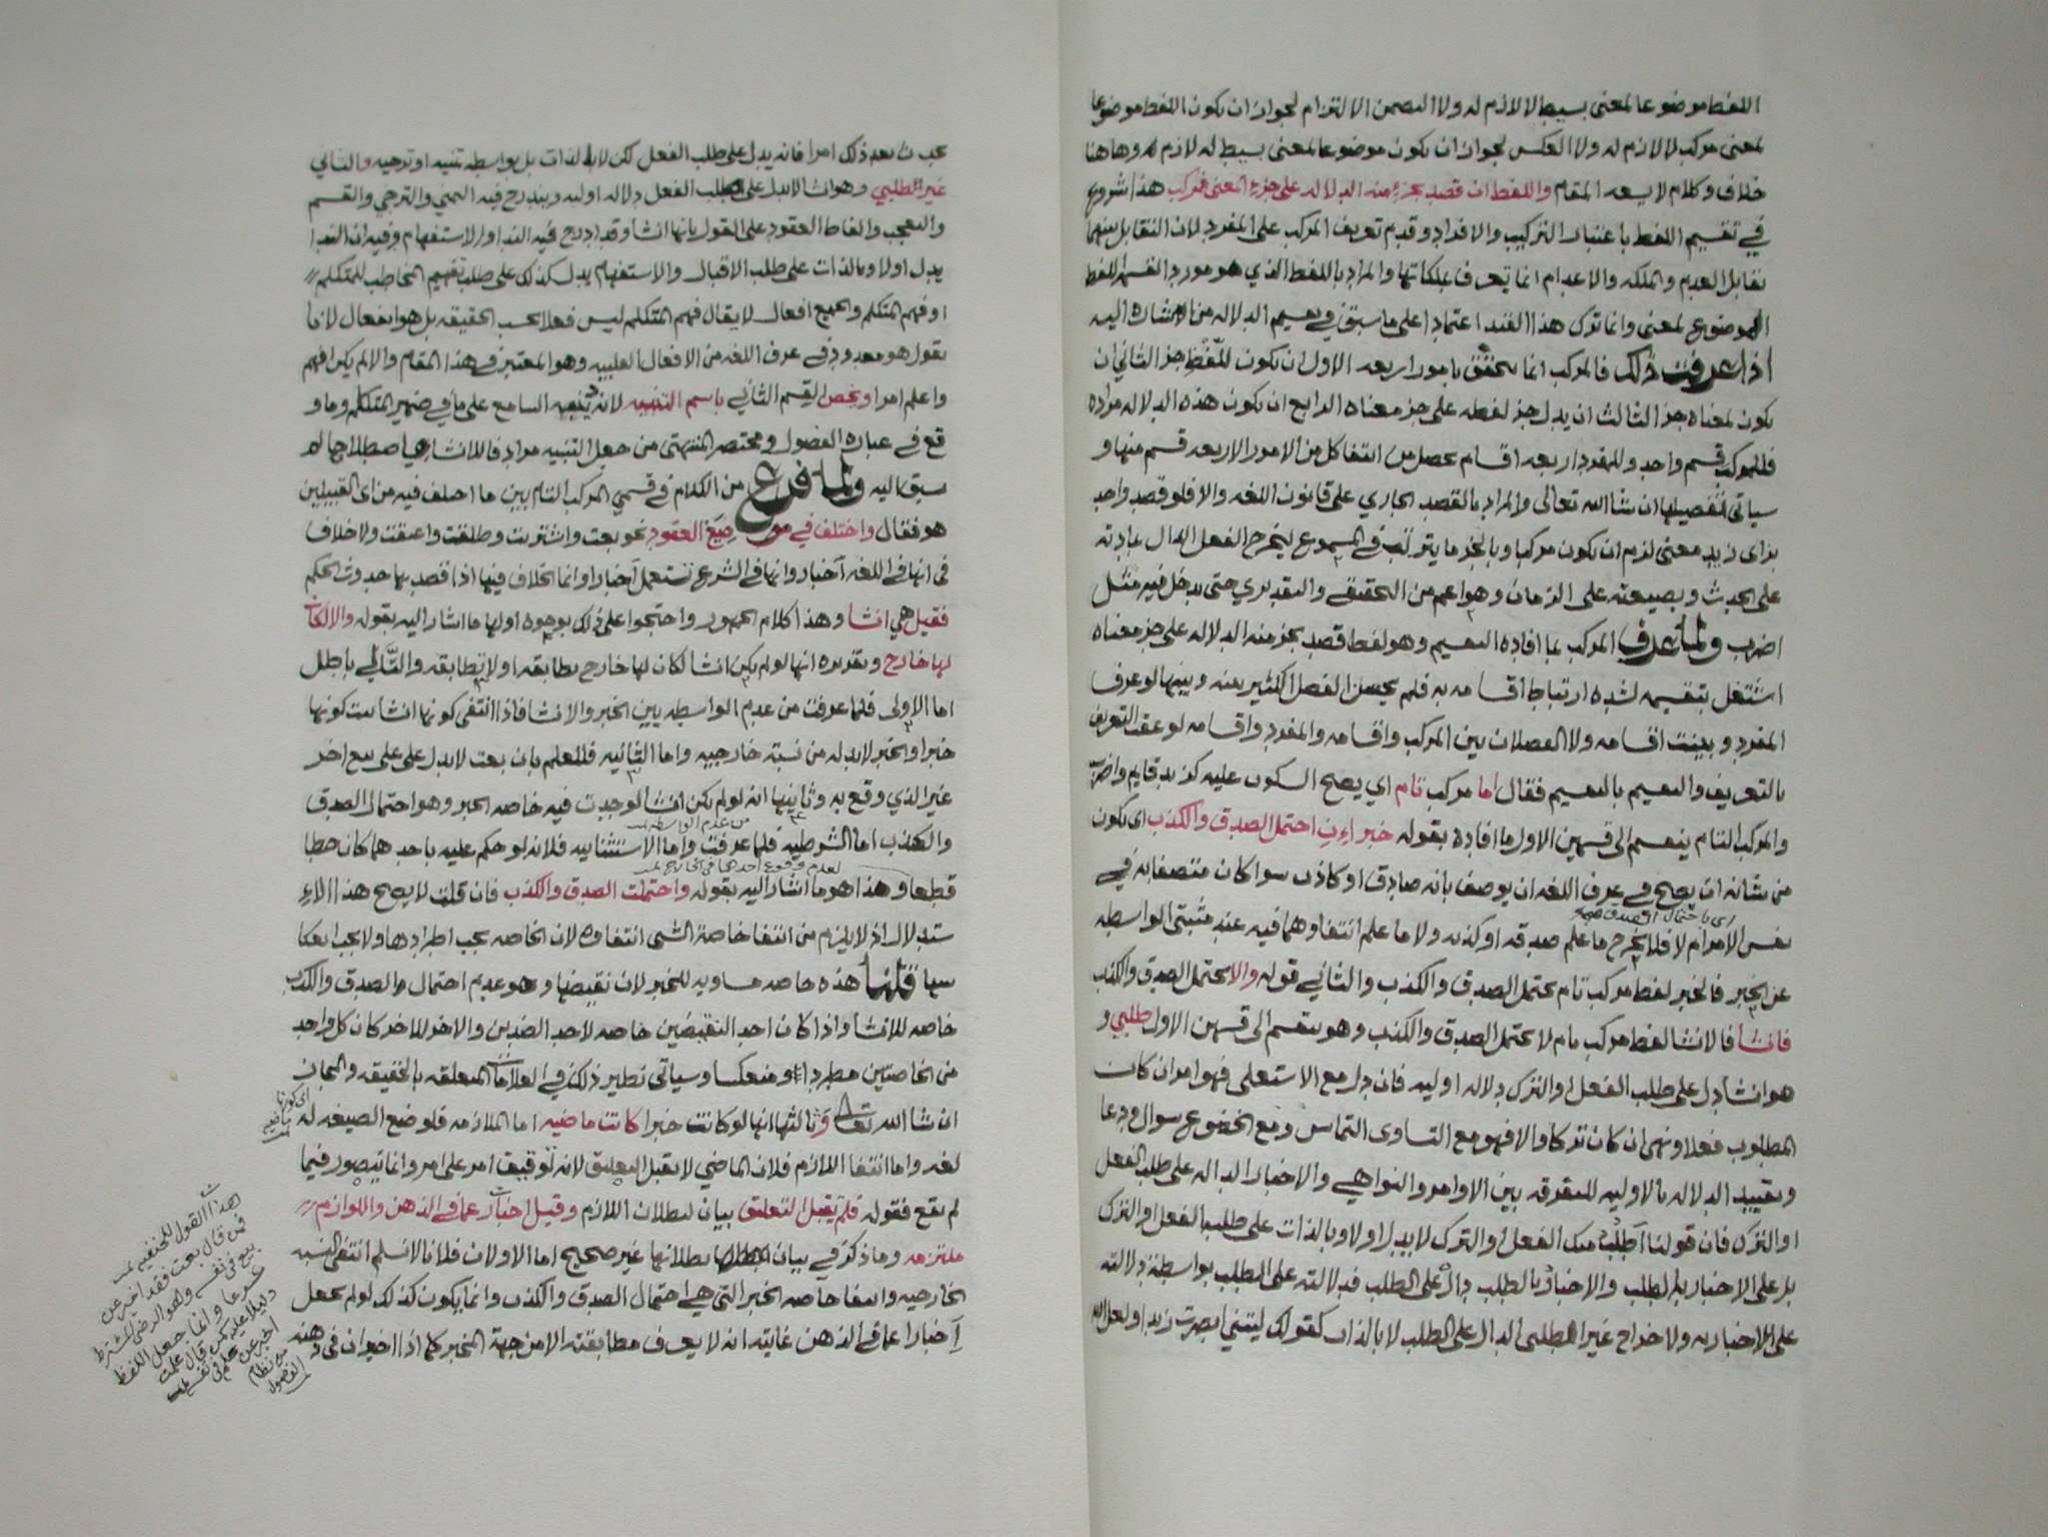 اللفظ موضوعا لمعنى بسيط لا لازم له ولا التضمن الالتزام لجواز ان يكون اللفظ موضوعا
لمعنى مركب لا لازم له ولا العكس لجواز ان يكون موضوعا لمعنى بسيط له لازم وهاهنا
خلاف وكلام لا يسعه المقام واللفظ ان قصد بجزء منه الدلاله على جزء المعنى فمركب هذا شروع
في تقسيم اللفظ باعتبار التركيب والافراد وقدم تعريف المركب على المفرد لان التقابل بينهما
تقابل العدم والملكه والاعدام انما تعرف بملكاتها والمراد باللفظ الذي هو مورد القسمه اللفظ
الموضوع لمعنى وانما ترك هذا القيد اعتمادا على ما سبق في تقسيم الدلاله من الاشاره اليه
اذا عرفت ذلك فالمركب انما يتحقق بامور اربعه الاول ان يكون للفظ جز الثاني ان
يكون لمعناه جز الثالث ان يدل جز لفظه على جز معناه الرابع ان يكون هذه الدلاله مراده
فللمركب قسم واحد وللمفرد اربعه اقسام تحصل من انتفا كل من الامور الاربعه قسم منها و
سياتي تفصيلها ان شا الله تعالى والمراد بالقصد الجاري على قانون اللغه والا فلو قصد واحد
بزاى زيد معنى لزم ان يكون مركبا وبالجز ما يترتب في المسموع ليخرج الفعل الدال بمادته
على الحدث وبصيغته على الزمان وهو اعم من التحقيقي والتقديري حتى يدخل فيه مثل
اضرب ولما عرف المركب بما افاده التقسيم وهو لفظ قصد بجز منه الدلاله على جز معناه
اشتغل بتقسيمه لشده ارتباط اقسامه به فلم يحسن الفصل الكثير بينه وبينها لو عرف
المفرد وبينت اقسامه ولا الفصلان بين المركب واقسامه والمفرد واقسامه لو عقب التعريف
بالتعريف والتقسيم بالتقسيم فقال اما مركب تام اي يصح السكوت عليه كزيد قايم واضرب
والمركب التام ينقسم الى قسمين الاول ما افاده بقوله خبر اءن احتمل الصدق والكذب اى يكون
من شانه ان يصح في عرف اللغه ان يوصف بانه صادق او كاذب سوا كان متصفا به في
اى باحتمال الصدق
نفس الامر ام لا فلا يخرج ما علم صدقه او كذبه ولا ما علم انتفاوهما فيه عند مثبتي الواسطه
عن الخبر فالخبر لفظ مركب تام يحتمل الصدق والكذب والثاني قوله والا يحتمل الصدق والكذب
فانشا فالانشا لفظ مركب تام لا يحتمل الصدق والكذب وهو ينقسم الى قسمين الاول طلبي و
هو انشا دل على طلب الفعل او الترك دلاله اوليه فان دل مع الاستعلى فهو امر ان كان
المطلوب فعلا ونهي ان كان تركا والا فهو مع التساوى التماس ومع الخضوع سوال ودعا
وتقييد الدلاله بالاوليه للتفرقه بين الاوامر والنواهي والاخبار الداله على طلب الفعل
او الترك فان قولنا اطلب منك الفعل او الترك لا يدل اولا وبالذات على طلب الفعل او الترك
بل على الاخبار بالطلب والاخبار بالطلب دال على الطلب فدلالته على الطلب بواسطة دلالته
على الاخبار به ولاخراج غير الطلبي الدال على الطلب لا بالذات كقولك ليتني ابصرت زيدا ولعل الله
يحدث بعد ذلك امرا فانه يدل على طلب الفعل لكن لا بالذات بل بواسطه تمنيه او ترجيه والثاني
غير الطلبي وهو انشا لا يدل على طلب الفعل دلاله اوليه ويندرج فيه التمني والترجي والقسم
والتعجب والفاظ العقود على القول بانها انشا وقد ادرج فيه الندا والاستفهام وفيه ان الندا
يدل اولا وبالذات على طلب الاقبال والاستفهام يدل كذلك على طلب تفهيم المخاطب للمتكلم
او فهم المتكلم والجميع افعال لا يقال فهم المتكلم ليس فعلا بحسب الحقيقه بل هو انفعال لانا
نقول هو معدود في عرف اللغه من الافعال القلبيه وهو المعتبر في هذا المقام والا لم يكن افهم
واعلم امرا ويخص القسم الثاني باسم التنبيه لانه ينبه السامع على ما في ضمير المتكلم وما و
قع في عباره الفصول ومختصر المنتهى من جعل التنبيه مرادفا للانشا هي اصطلاح ما له
سبق اليه ولما فرغ من الكلام في قسمي المركب التام بين ما اختلف فيه من اى القبيلين
هو فقال واختلف في صيغ العقود نحو بعت واشتريت وطلقت واعتقت ولا خلاف
في انها في اللغه اخبار وانها في الشرع تستعمل اخبارا وانما الخلاف فيها اذا قصد بها حدوث الحكم
فقيل هي انشا وهذا كلام الجمهور واحتجوا على ذلك بوجوه اولها ما اشار اليه بقوله والا لكان
لها خارج وتقريره انها لو لم يكن انشا لكان لها خارج تطابقه او لا تطابقه والتالي باطل
اما الاولى فلما عرفت من عدم الواسطه بين الخبر والانشا فاذا انتفى كونها انشا ثبت كونها
خبرا والخبر لا بد له من نسبة خارجيه واما الثانيه فللعلم بان بعت لا يدل على بيع اخر
غير الذي وقع به وثانيها انه لو لم يكن انشا لوجدت فيه خاصه الخبر وهو احتمال الصدق
من عدم الواسطه
والكذب اما الشرطيه فلما عرفت واما الاستثنائيه فلانه لو حكم عليه باحدهما كان خطا
لعدم وقوع احدهما في الخارج
قطعا وهذا هو ما اشار اليه بقوله واحتملت الصدق والكذب فان قلت لا يصح هذا الاء
ستدلال اذ لا يلزم من انتفا خاصة الشى انتفاوه لان الخاصه يجب اطرادها ولا يجب انعكا
سها قلنا هذه خاصه مساويه للخبر لان نقيضها وهو عدم احتمال الصدق والكذب
خاصه للانشا واذا كان احد النقيضين خاصه لاحد الضدين والاخر للاخر كان كل واحد
من الخاصتين مطردا ومنعكسا وسياتي نظير ذلك في العلامات المتعلقه بالحقيقه والمجاز
ان شا الله تعالى وثالثها انها لو كانت خبرا كانت ماضيه اما الملازمه فلوضع الصيغه له
اى كونها ماضيه
لغه واما انتفا اللازم فلان الماضي لا يقبل التعليق لانه توقيف امر على امر وانما يتصور فيما
لم يقع فقوله فلم يقبل التعليق بيان لبطلان اللازم وقيل اخبار عما في الذهن واللوازم
ملتزمه وما ذكر في بيان بطلانها غير صحيح اما الاولان فلانا لا نسلم انتفى النسبه
الخارجيه وانتفا خاصه الخبر التي هي احتمال الصدق والكذب وانما يكون كذلك لو لم يجعل
اخبارا عما في الذهن غايته انه لا يعرف مطابقته الا من جهة المخبر كما اذا اخبر ان في ذهنه
هذا القول للحنفيه
فمن قال بعت فقد اخبر عن
بيع في نفسه وهو الرضى المشترط
شرعا وانما جعل اللفظ
دليلا عليه كمن قال علمت
اخبر عن علم في نفسه
من نظام
الفصول